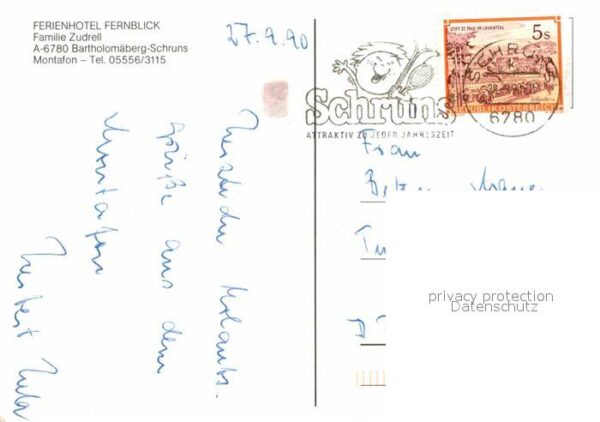 FERIENHOTEL FERNBLICK
Familie Zudrell
A-6780 Bartholomäberg-Schruns
Montafon – Tel. 05556/3115
27.9.90
Schruns
ATTRAKTIV ZU JEDER JAHRESZEIT
STIFT ST. PAUL IM LAVANTTAL
5s
REPUBLIK ÖSTERREICH
SCHRUNS
6780
Herzliche Urlaubs-
grüße aus dem
Montafon
Herbert
Frau
privacy protection
Datenschutz